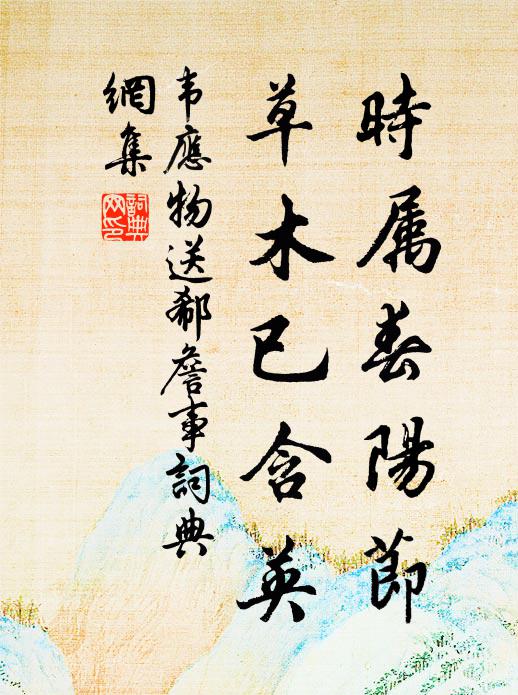 時属春陽節
草木已含英
韦應物送郗詹事詞典
網集
詞典
网印